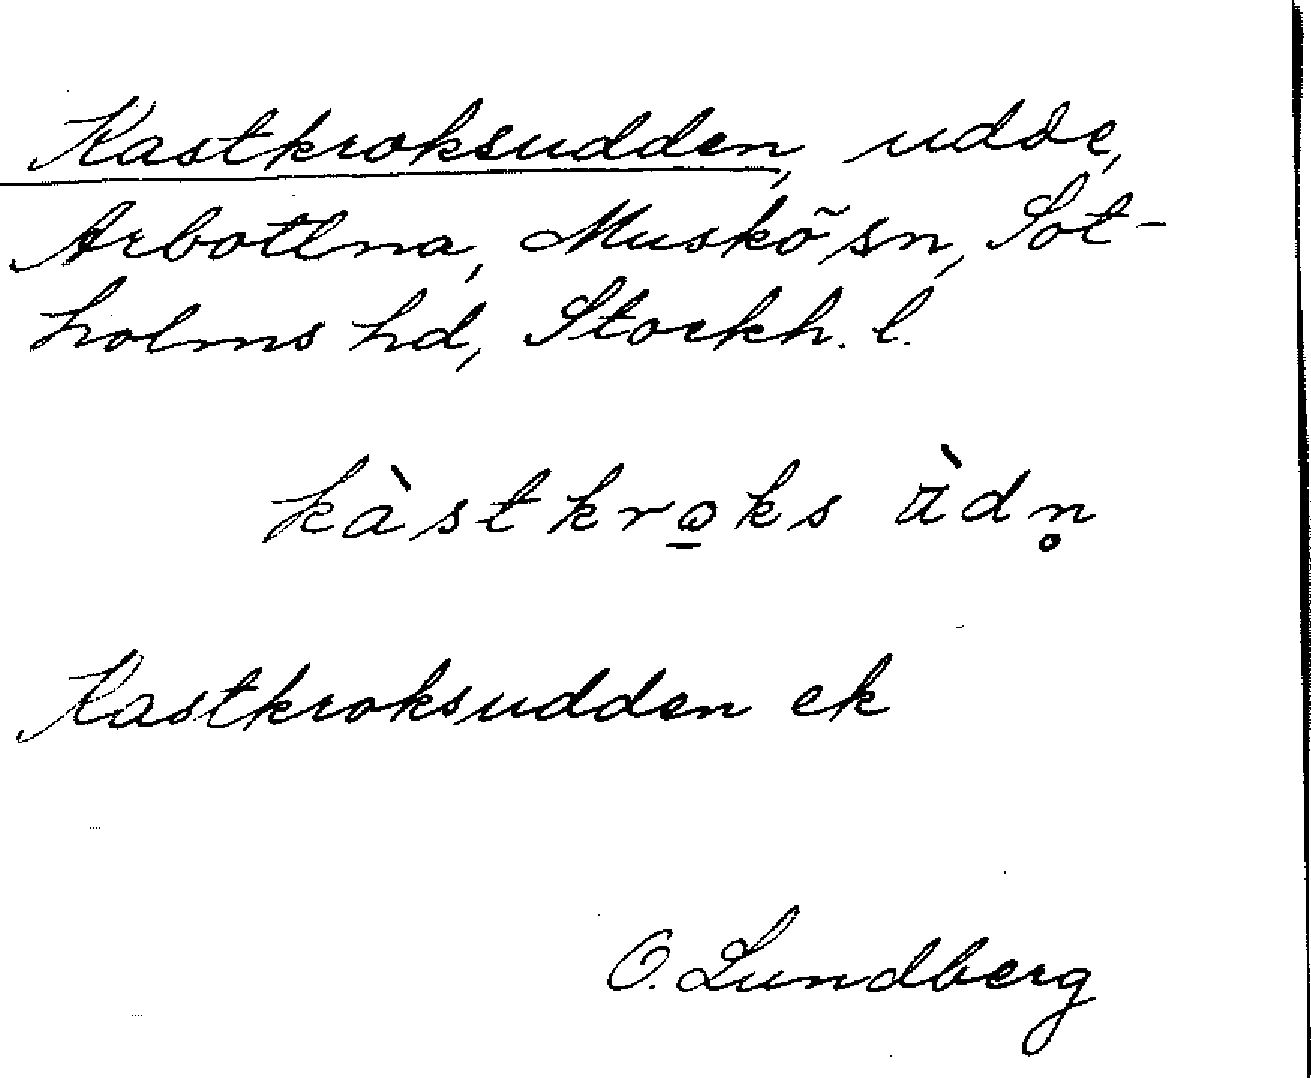 Kastkroksudden, udde,
Arbottna, Muskö sn, Sot-
holms hd, Stockh. l.
kàstkrωks ùdn̥
Kastkroksudden ek
O. Lundberg